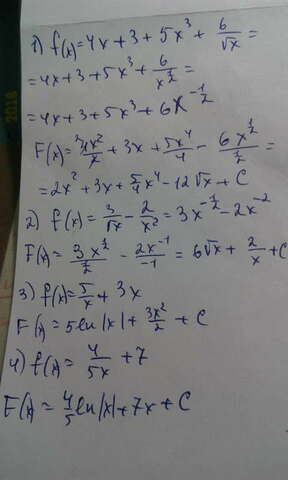 1) f(x)=4x+3+5x³+6/√x=
=4x+3+5x³+6/x^½=
=4x+3+5x³+6x^-½
F(x)=4x²/2+3x+5x⁴/4-6x^½/½=
=2x²+3x+5/4x⁴-12√x+C
2) f(x)=3/√x-2/x²=3x^-½-2x^-2
F(x)=3x^½/½-2x^-1/-1=6√x+2/x+C
3) f(x)=5/x+3x
F(x)=5ln|x|+3x²/2+C
4) f(x)=4/5x+7
F(x)=4/5ln|x|+7x+C
2016